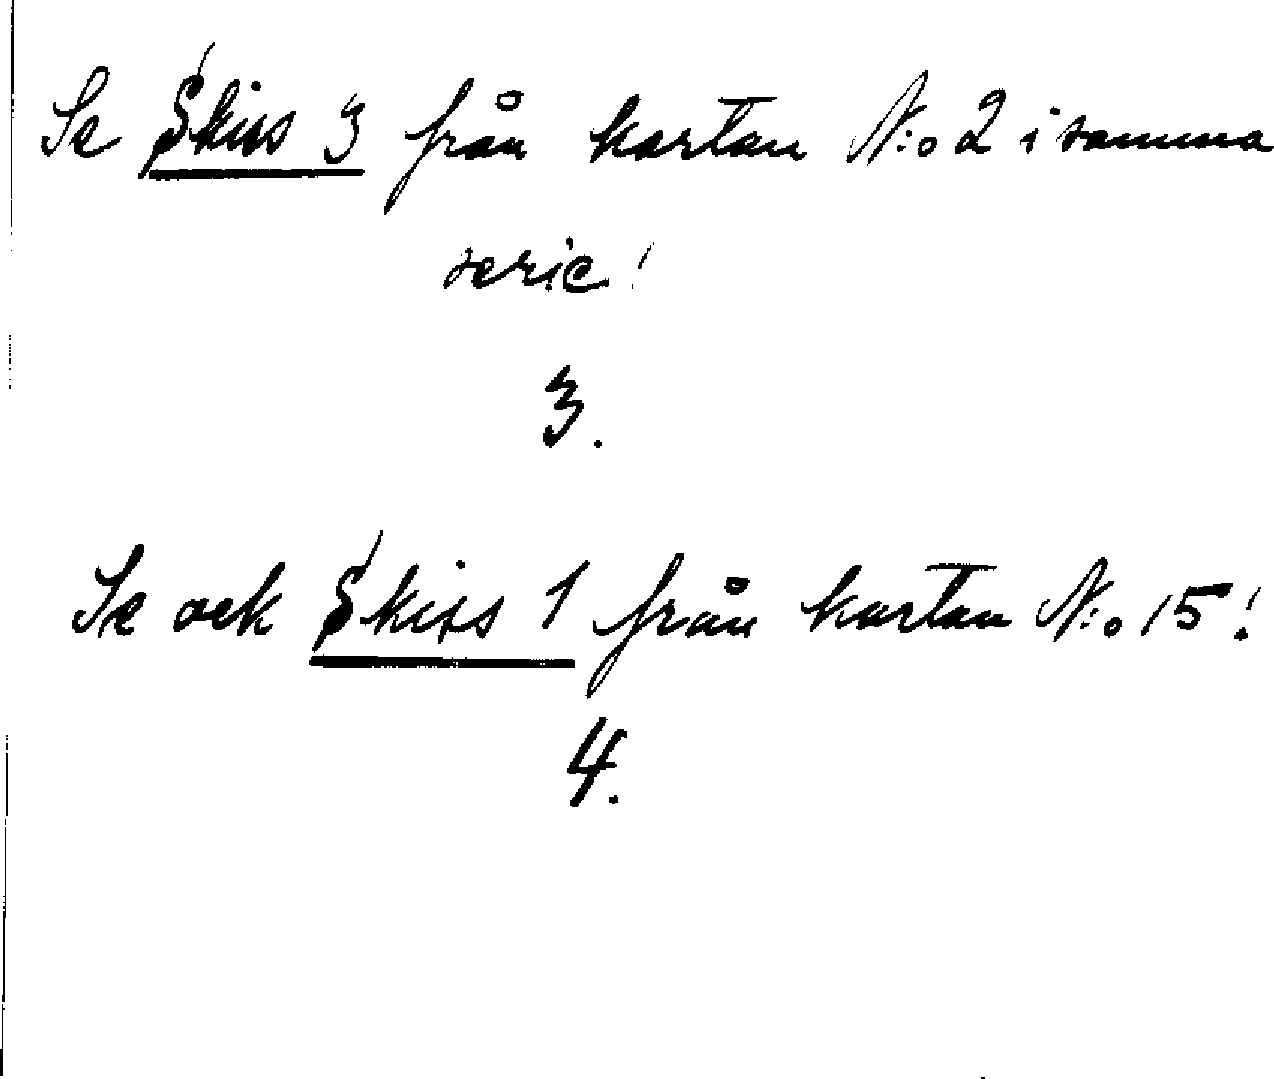 Se Skiss 3 från kartan N:o 2 i samma
serie!
3.
Se ock Skiss 1 från kartan N:o 15!
4.